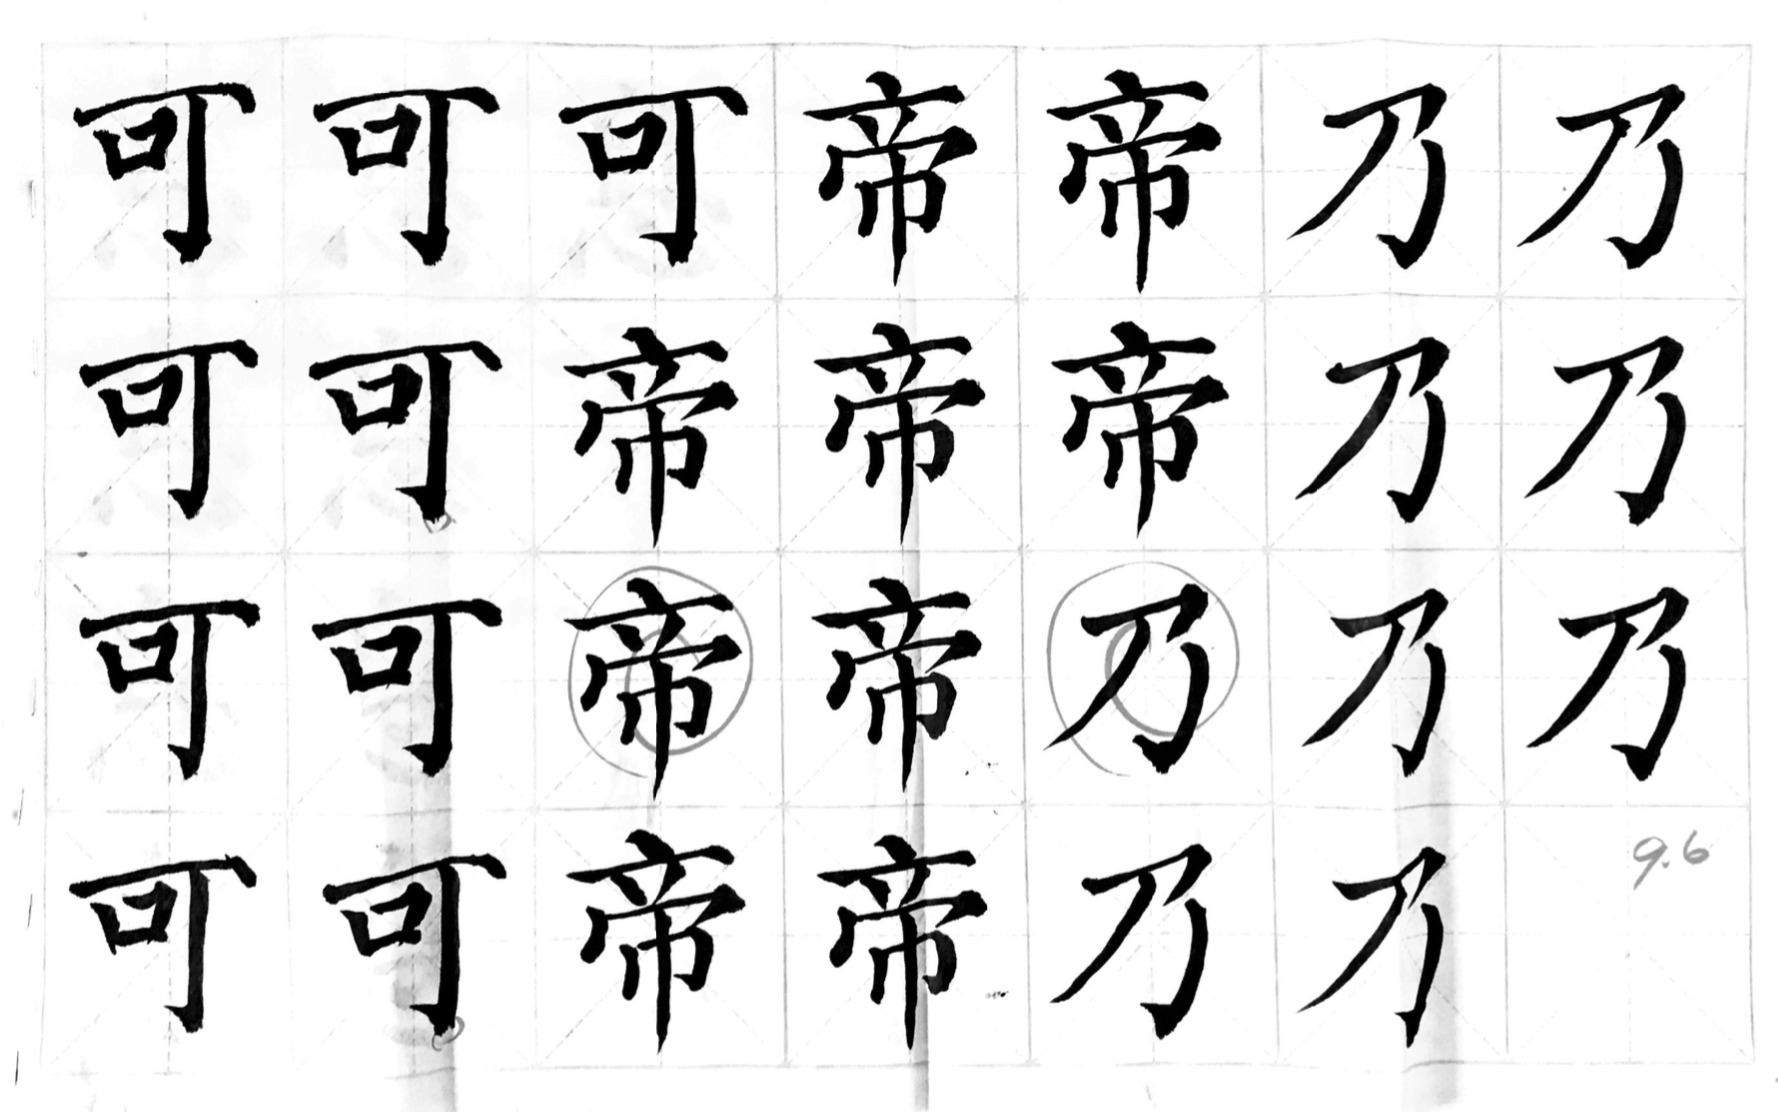 可可可帝帝乃乃
可可帝帝帝乃乃
可可帝帝乃乃乃
可可帝帝乃乃
9.6